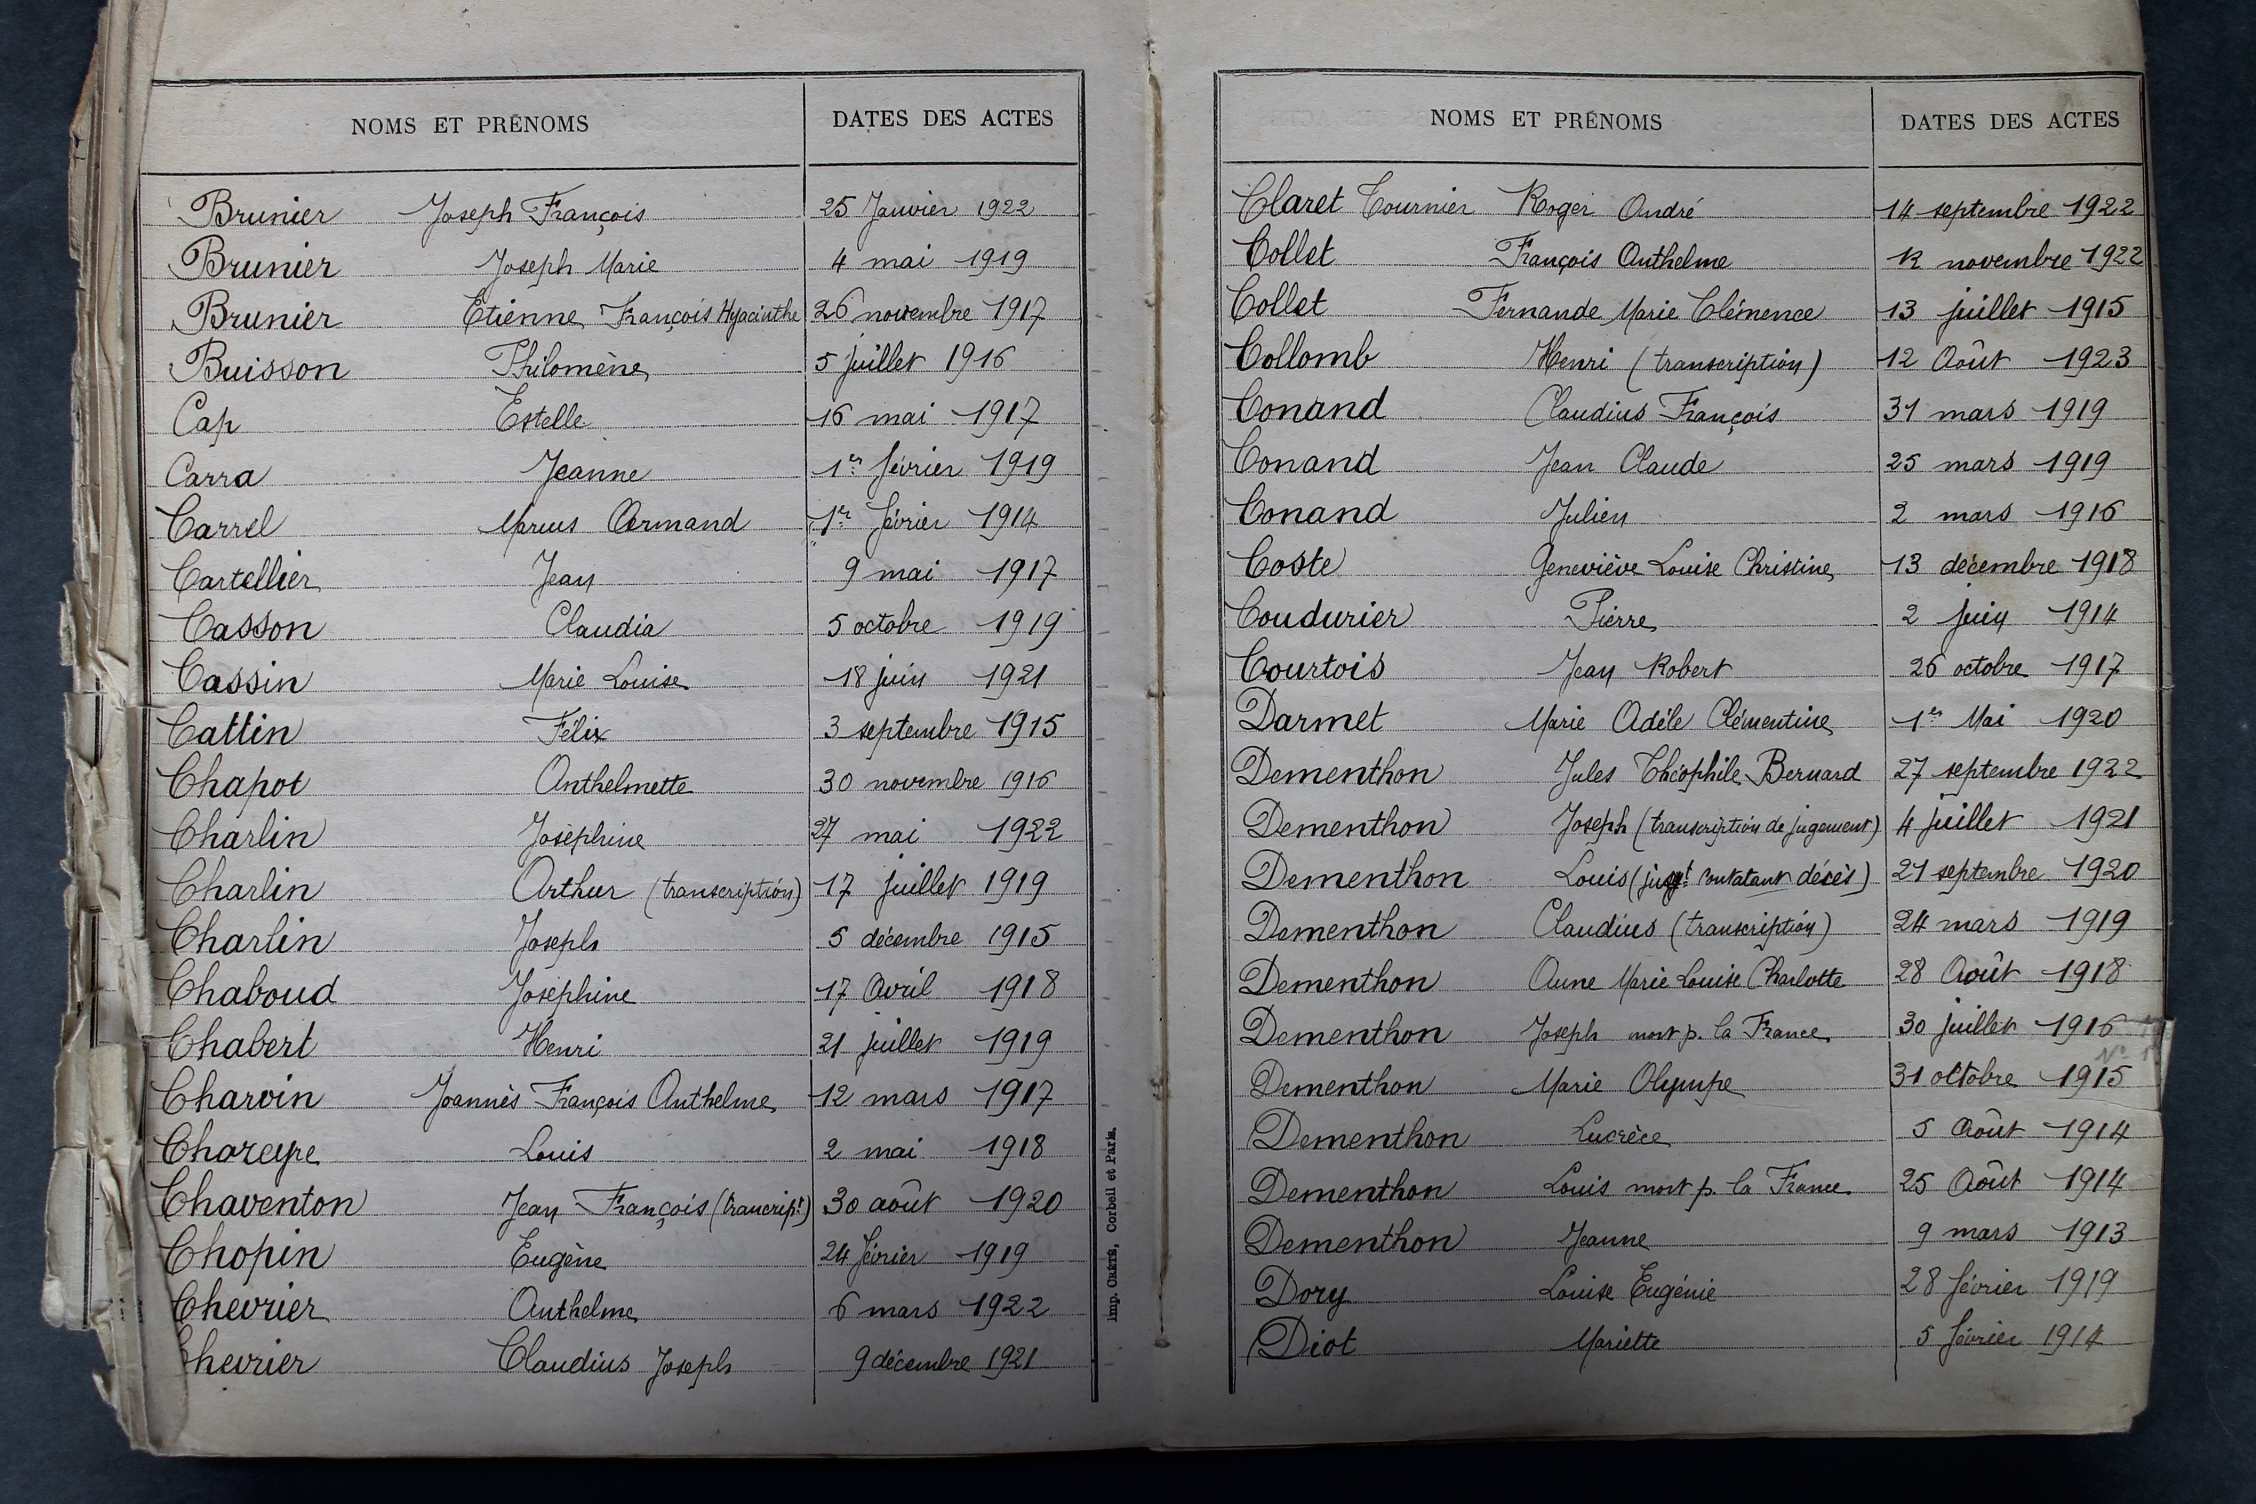 NOMS ET PRÉNOMS DATES DES ACTES
Brunier Joseph François 25 Janvier 1922
Brunier Joseph Marie 4 mai 1919
Brunier Etienne François Hyacinthe 26 novembre 1917
Buisson Philomène 5 juillet 1916
Cap Estelle 16 mai 1917
Carra Jeanne 1er février 1919
Carrel Marius Armand 1er février 1914
Cartellier Jean 9 mai 1917
Casson Claudia 5 octobre 1919
Cassin Marie Louise 18 juin 1921
Cattin Félix 3 septembre 1915
Chapot Anthelmette 30 novembre 1916
Charlin Joséphine 27 mai 1922
Charlin Arthur (transcription) 17 juillet 1919
Charlin Joseph 5 décembre 1915
Chaboud Joséphine 17 Avril 1918
Chabert Henri 21 juillet 1919
Charvin Joannès François Anthelme 12 mars 1917
Chareyre Louis 2 mai 1918
Chaventon Jean François (trancript) 30 août 1920
Chopin Eugène 24 février 1919
Chevrier Anthelme 6 mars 1922
Chevrier Claudius Joseph 9 décembre 1921
Imp. CRÉTÉ, Corbeil et Paris.
NOMS ET PRÉNOMS DATES DES ACTES
Claret Tournier Roger André 14 septembre 1922
Collet François Anthelme 12 novembre 1922
Collet Fernande Marie Clémence 13 juillet 1915
Collomb Henri (transcription) 12 Août 1923
Conand Claudius François 31 mars 1919
Conand Jean Claude 25 mars 1919
Conand Julien 2 mars 1916
Coste Geneviève Louise Christine 13 décembre 1918
Coudurier Pierre 2 juin 1914
Courtois Jean Robert 26 octobre 1917
Darmet Marie Adèle Clémentine 1er Mai 1920
Dementhon Jules Théophile Bernard 27 septembre 1922
Dementhon Joseph (transcription de jugement) 4 juillet 1921
Dementhon Louis (jugt constatant décès) 21 septembre 1920
Dementhon Claudius (transcription) 24 mars 1919
Dementhon Anne Marie Louise Charlotte 28 Août 1918
Dementhon Joseph mort p. la France 30 juillet 1916
Dementhon Marie Olympe 31 octobre 1915
Dementhon Lucrèce 5 Août 1914
Dementhon Louis mort p. la France 25 Août 1914
Dementhon Jeanne 9 mars 1913
Dory Louise Eugénie 28 février 1919
Diot Mariette 5 février 1914